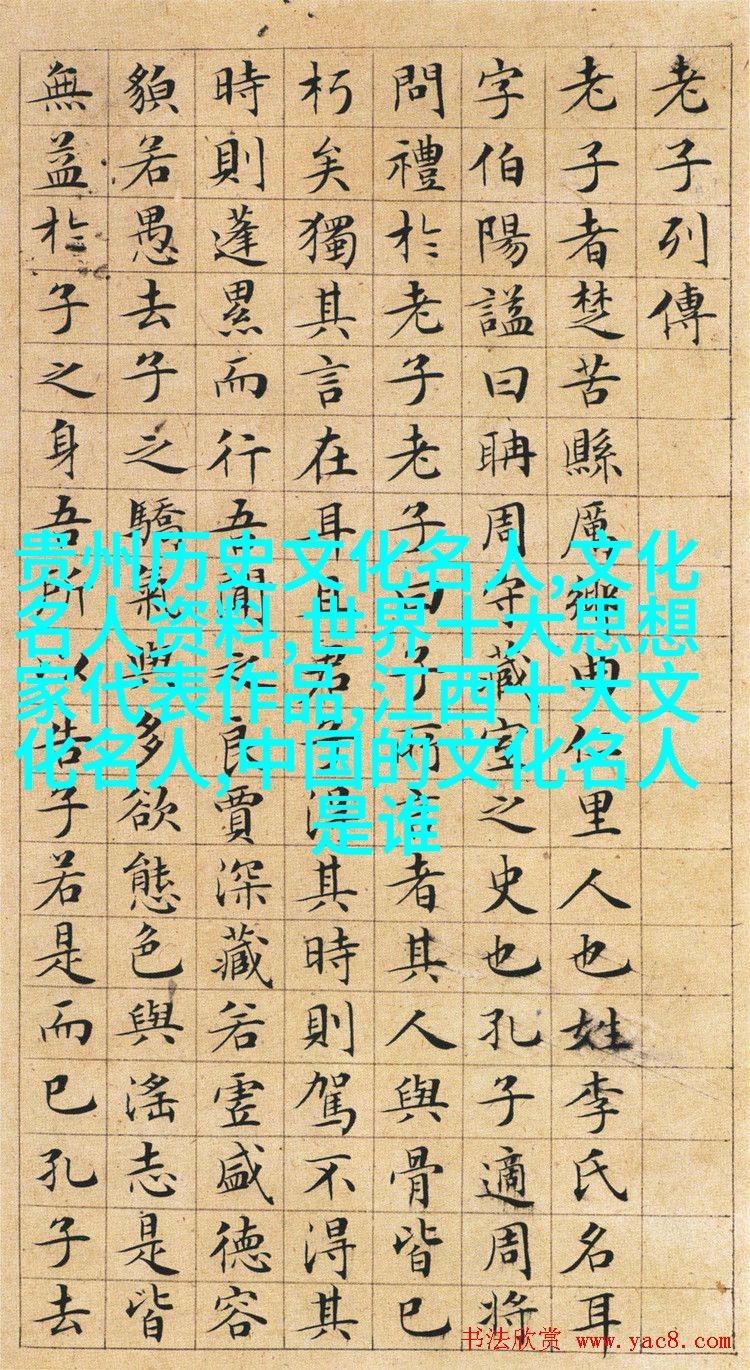 老子列傳
老子者楚苦縣厲鄉曲仁里人也姓李氏名耳
字伯陽謚曰聃周守藏室之史也孔子適周將
問禮於老子老子曰子所言者其人與骨皆已
朽矣獨其言在耳且君子得其時則駕不得其
時則蓬累而行吾聞之良賈深藏若虛盛德容
貌若愚去子之驕氣與多欲態色與淫志是皆
無益於子之身吾所以告子若是而已孔子去
贵州历史文化名人,文化
名人资料,世界十大思想
家代表作品,江西十大文
化名人,中国的文化名人
是谁
书法欣赏 www.yac8.com